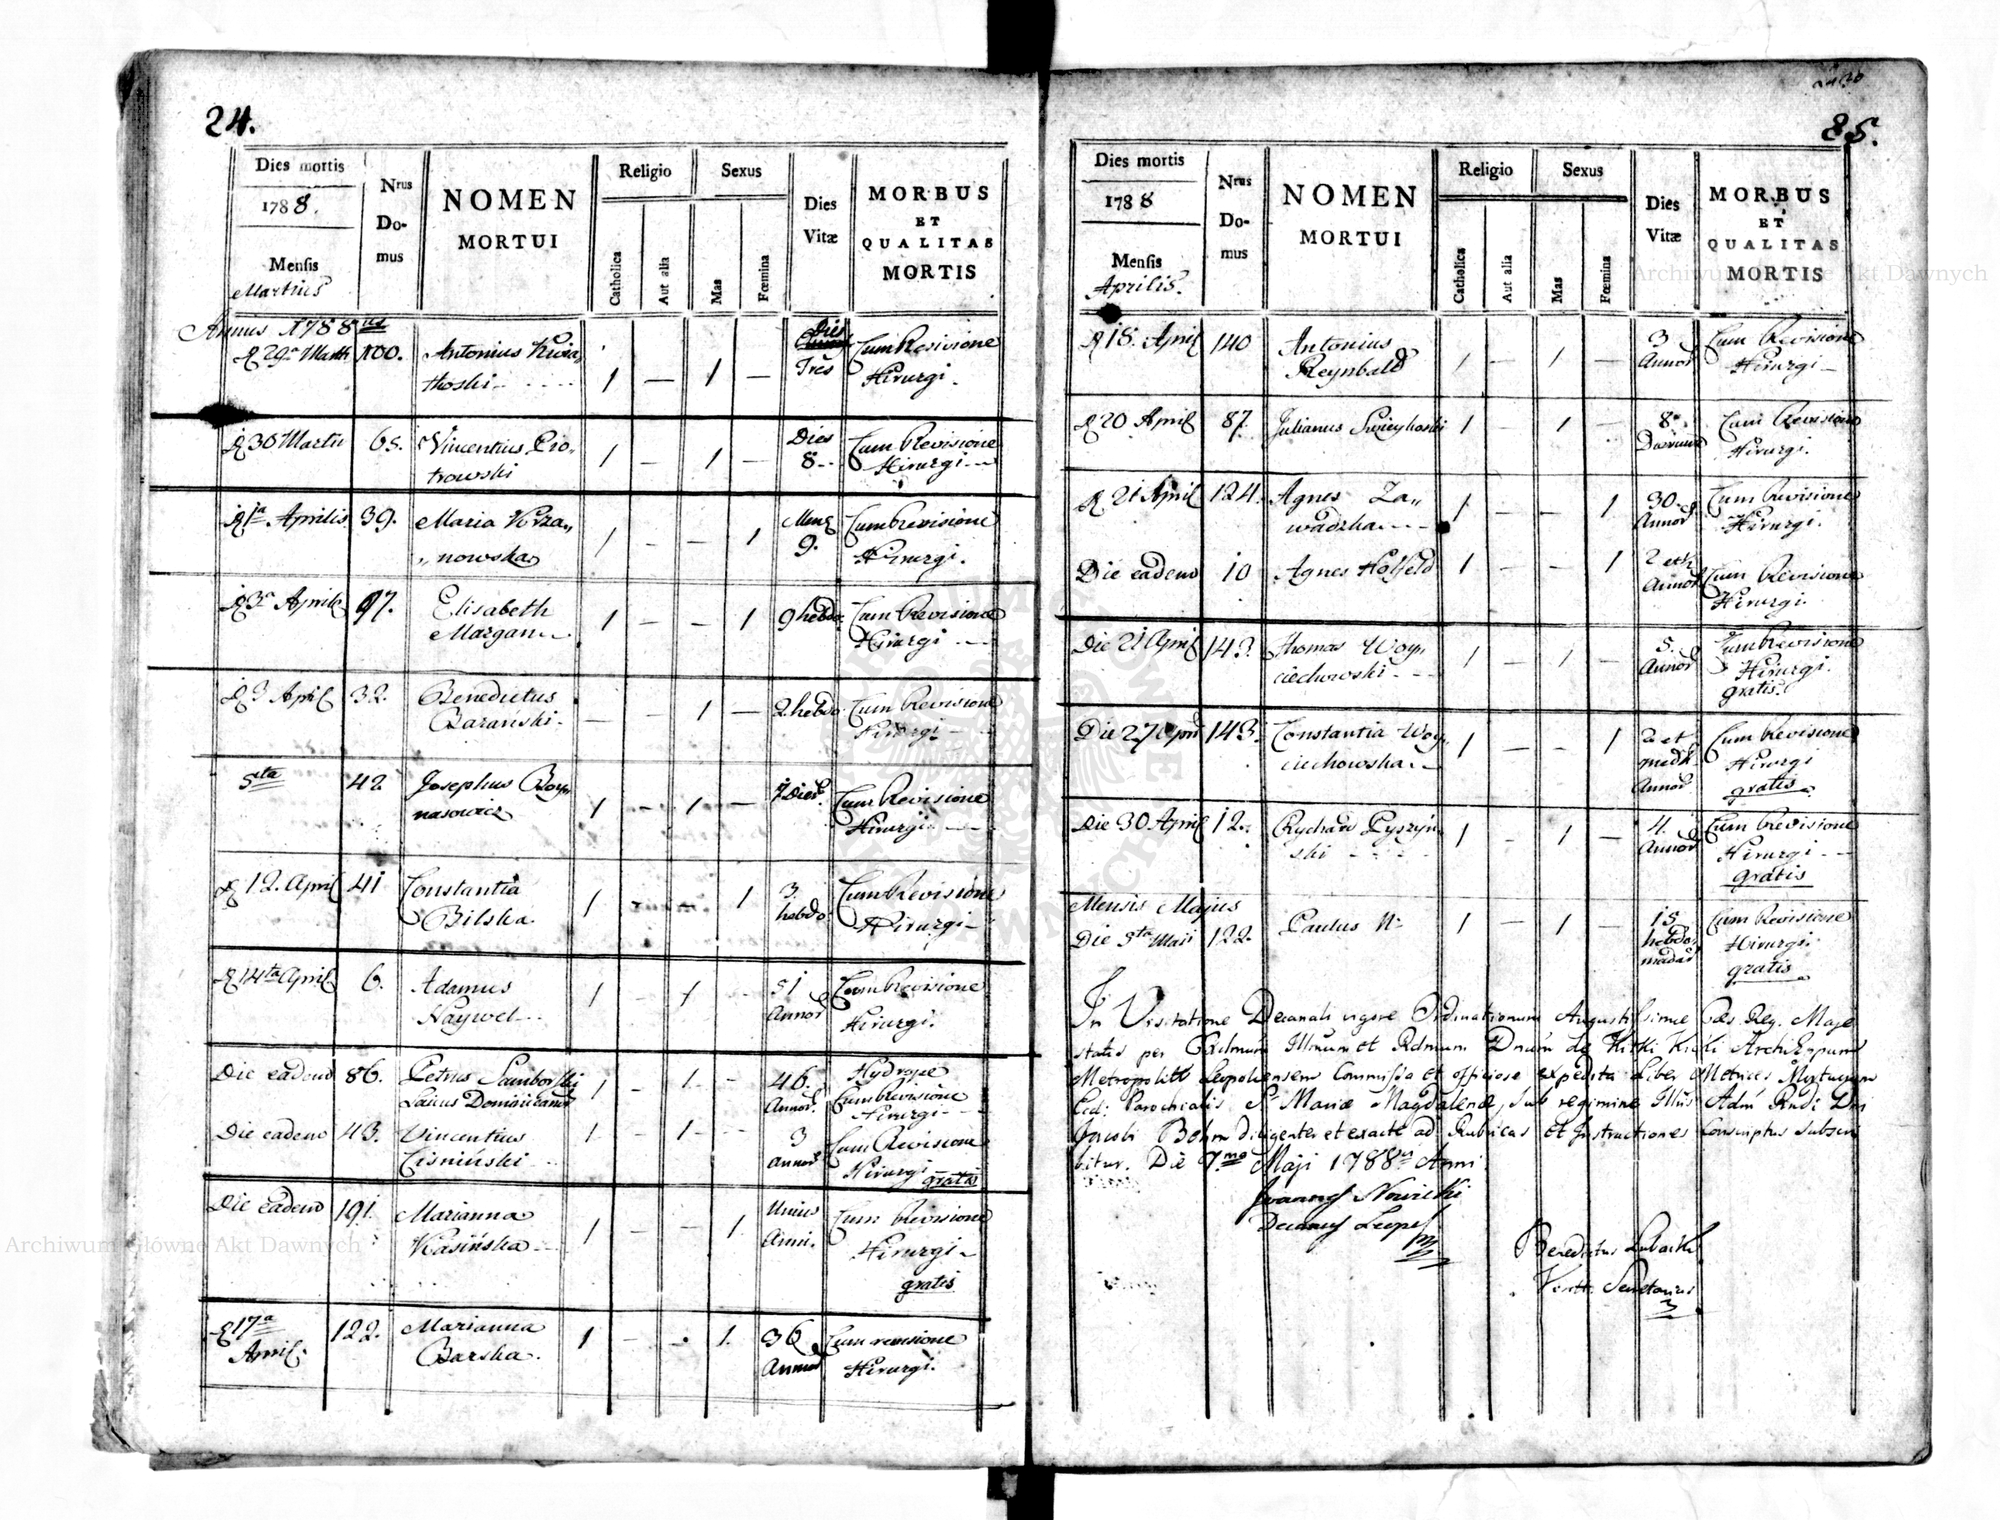 24.
Dies mortis
1788.
Mensis
Martius
Nrus
Do-
mus
NOMEN
MORTUI
Religio
Catholica
Aut alia
Sexus
Mas
Fœmina
Dies
Vitæ
MORBUS
ET
QUALITAS
MORTIS
Annus 1788vus
29a Martii 100. Antonius Kwia„ 1 — 1 — Dies Cum Revisione
tkoski Tres Hirurgi.
30 Martii 65. Vincentius Pio„ 1 — 1 — Dies Cum Revisione
trowski 8 Hirurgi
1a Aprilis 39. Maria Krza„ 1 — — 1 Mens Cum Revisione
„nowska 9. Hirurgi.
3a Aprilis 97. Elisabeth 1 — — 1 9 hebdo: Cum Revisione
Margan Hirurgi
3 April 32. Benedictus — — 1 — 2 hebdo. Cum Revisione
Baranski Hirurgi
5ta 42 Josephus 1 — 1 — 7 Dies. Cum Revisione
nasowicz Hirurgi
12. April 41 Constantia 1 1 3. Cum Revisione
Bilska hebdo Hirurgi
14ta April 6. Adamus 1 — 1 51 Cum Revisione
Haywel Annor Hirurgi.
Die eadem 86. Petrus Samborski 1 — 1 — 46. Hydrope
Laicus Dominicanus Annor. Cum Revisione
Hirurgi
Die eadem 43. Vincentius 1 — 1 — 3 Cum Revisione
Cisniński Annor Hirurgi gratis
Die eadem 191. Marianna 1 1 Unius Cum Revisione
Kasińska Anni. Hirurgi
gratis
17a 122. Marianna 1 — 1. 36 Cum revisione
April. Barska. Annor Hirurgi.
85.
Dies mortis
1788
Mensis
Aprilis.
Nrus
Do-
mus
NOMEN
MORTUI
Religio
Catholica
Aut alia
Sexus
Mas
Fœmina
Dies
Vitæ
MORBUS
ET
QUALITAS
MORTIS
18. April 140 Antonius 1 — 1 — 3 Cum Revisione
Reynbald Annor Hirurgi
20 April 87. Julianus 1 — 1 — 8 Cum Revisione
Hirurgi.
21 April 124. Agnes Za„ 1 — — 1 30 Cum Revisione
wadzka Annor Hirurgi.
Die eadem 10 Agnes Holfeld 1 — — 1 2 Cum Revisione
Annor Hirurgi.
Die 21 April 143. Thomas Woy„ 1 — 1 — 5. Cum Revisione
ciechowski Annor Hirurgi.
gratis.
Die 27 April 143. Constantia Woy„ 1 — — 1 2 et Cum Revisione
ciechowska medii Hirurgi
Annor gratis
Die 30 April 12. Rychard Pyszyń„ 1 — 1 — 4. Cum Revisione
ski Annor Hirurgi
gratis
Mensis Majus
Die 5ta Maii 122. Paulus N. 1 — 1 — 15 Cum Revisione
hebdo„ Hirurgi.
madar gratis
In Visitatione Decanali vigore Ordinationum Augustissimæ Cæs. Reg. Maje
statis per Illmum et Rdmum Dnum de Kitki Kicki Archi Eppum
Metropolit Leopoliensem Commissa et officiose expedita Liber Metrices Mortuorum
Eccl: Parochialis S Mariæ Magdalenæ, sub regimine Adm Rndi Dni
Jacobi Bohm diligenter et exacte ad Rubricas et Instructiones Conscriptus subscri
bitur. Die 7ma Maji 1788vi Anni
Joannes Nowicki
Decanus Leopol
mp
Benedictus Lubacki
Secretarius
Archiwum Główne Akt Dawnych
Archiwum Główne Akt Dawnych